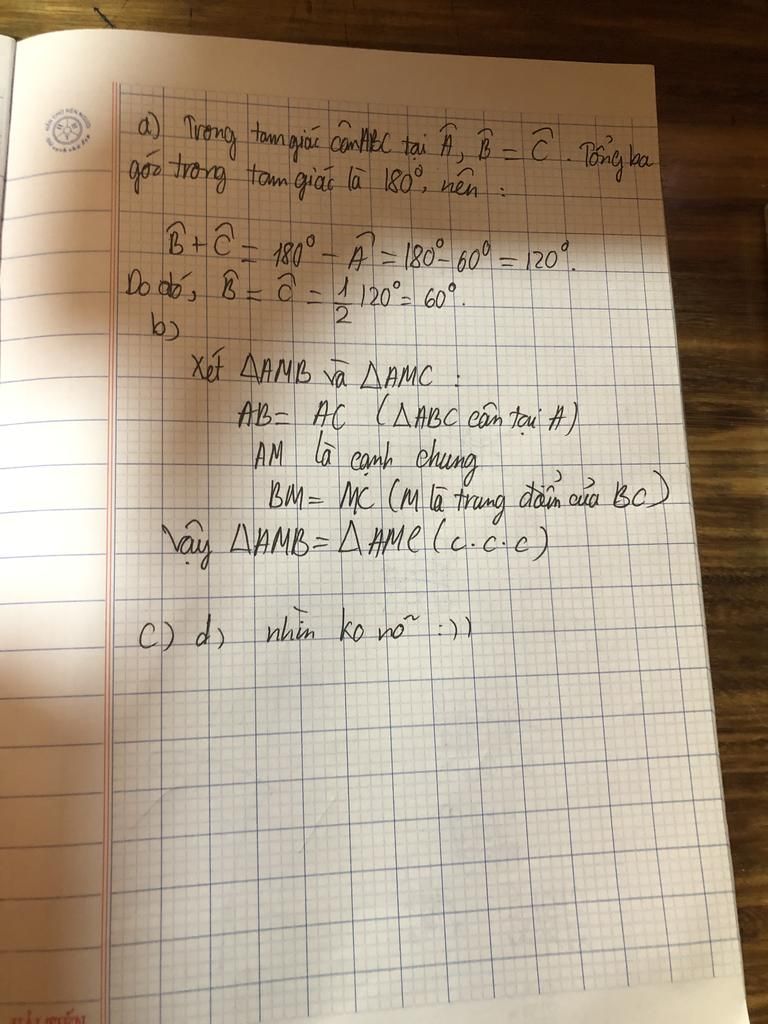 a) Trong tam giác cân ABC tại Â, B̂ = Ĉ. Tổng ba
góc trong tam giác là 180°, nên :
B̂ + Ĉ = 180° − Â = 180° − 60° = 120°.
Do đó, B̂ = Ĉ = 1/2 120° = 60°.
b)
Xét ΔAMB và ΔAMC :
AB = AC (ΔABC cân tại A)
AM là cạnh chung
BM = MC (M là trung điểm của BC)
Vậy ΔAMB = ΔAMC (c.c.c)
c) d) nhìn ko rõ :))